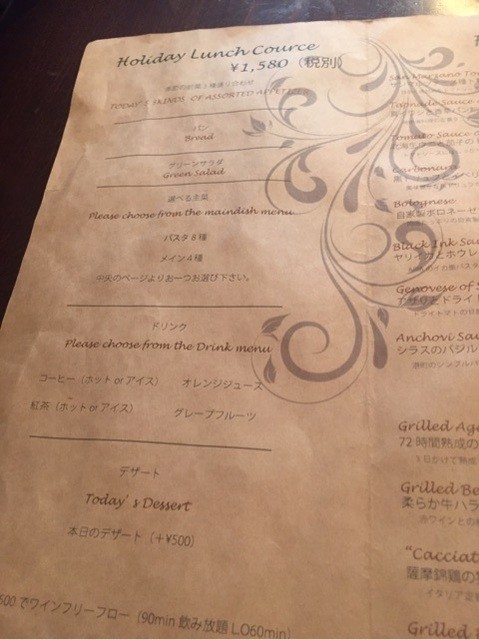 Holiday Lunch Cource
¥1,580（税別）
TODAY'S 3KINDS OF ASSORTED APPETIZER
パン
Bread
グリーンサラダ
Green Salad
選べる主菜
Please choose from the maindish menu
パスタ8種
メイン4種
中央のページよりお一つお選び下さい。
ドリンク
Please choose from the Drink menu
コーヒー（ホット or アイス） オレンジジュース
紅茶（ホット or アイス） グレープフルーツ
デザート
Today's Dessert
本日のデザート（＋¥500）
500でワインフリーフロー（90min 飲み放題 L.O60min）
San Marzano
Tapnade Sauce
Tomato Sauce
Carbonara
Bolognese
自家製ボロネーゼ
Black Ink Sau
ヤリイカとホウレ
Genovese of S
Anchovi Sau
シラスのバジル
Grilled Age
72時間熟成の
3日かけて熟成
Grilled Be
柔らか牛ハラ
赤ワインとの
"Cacciat
薩摩錦鶏の
イタリア定
Grilled